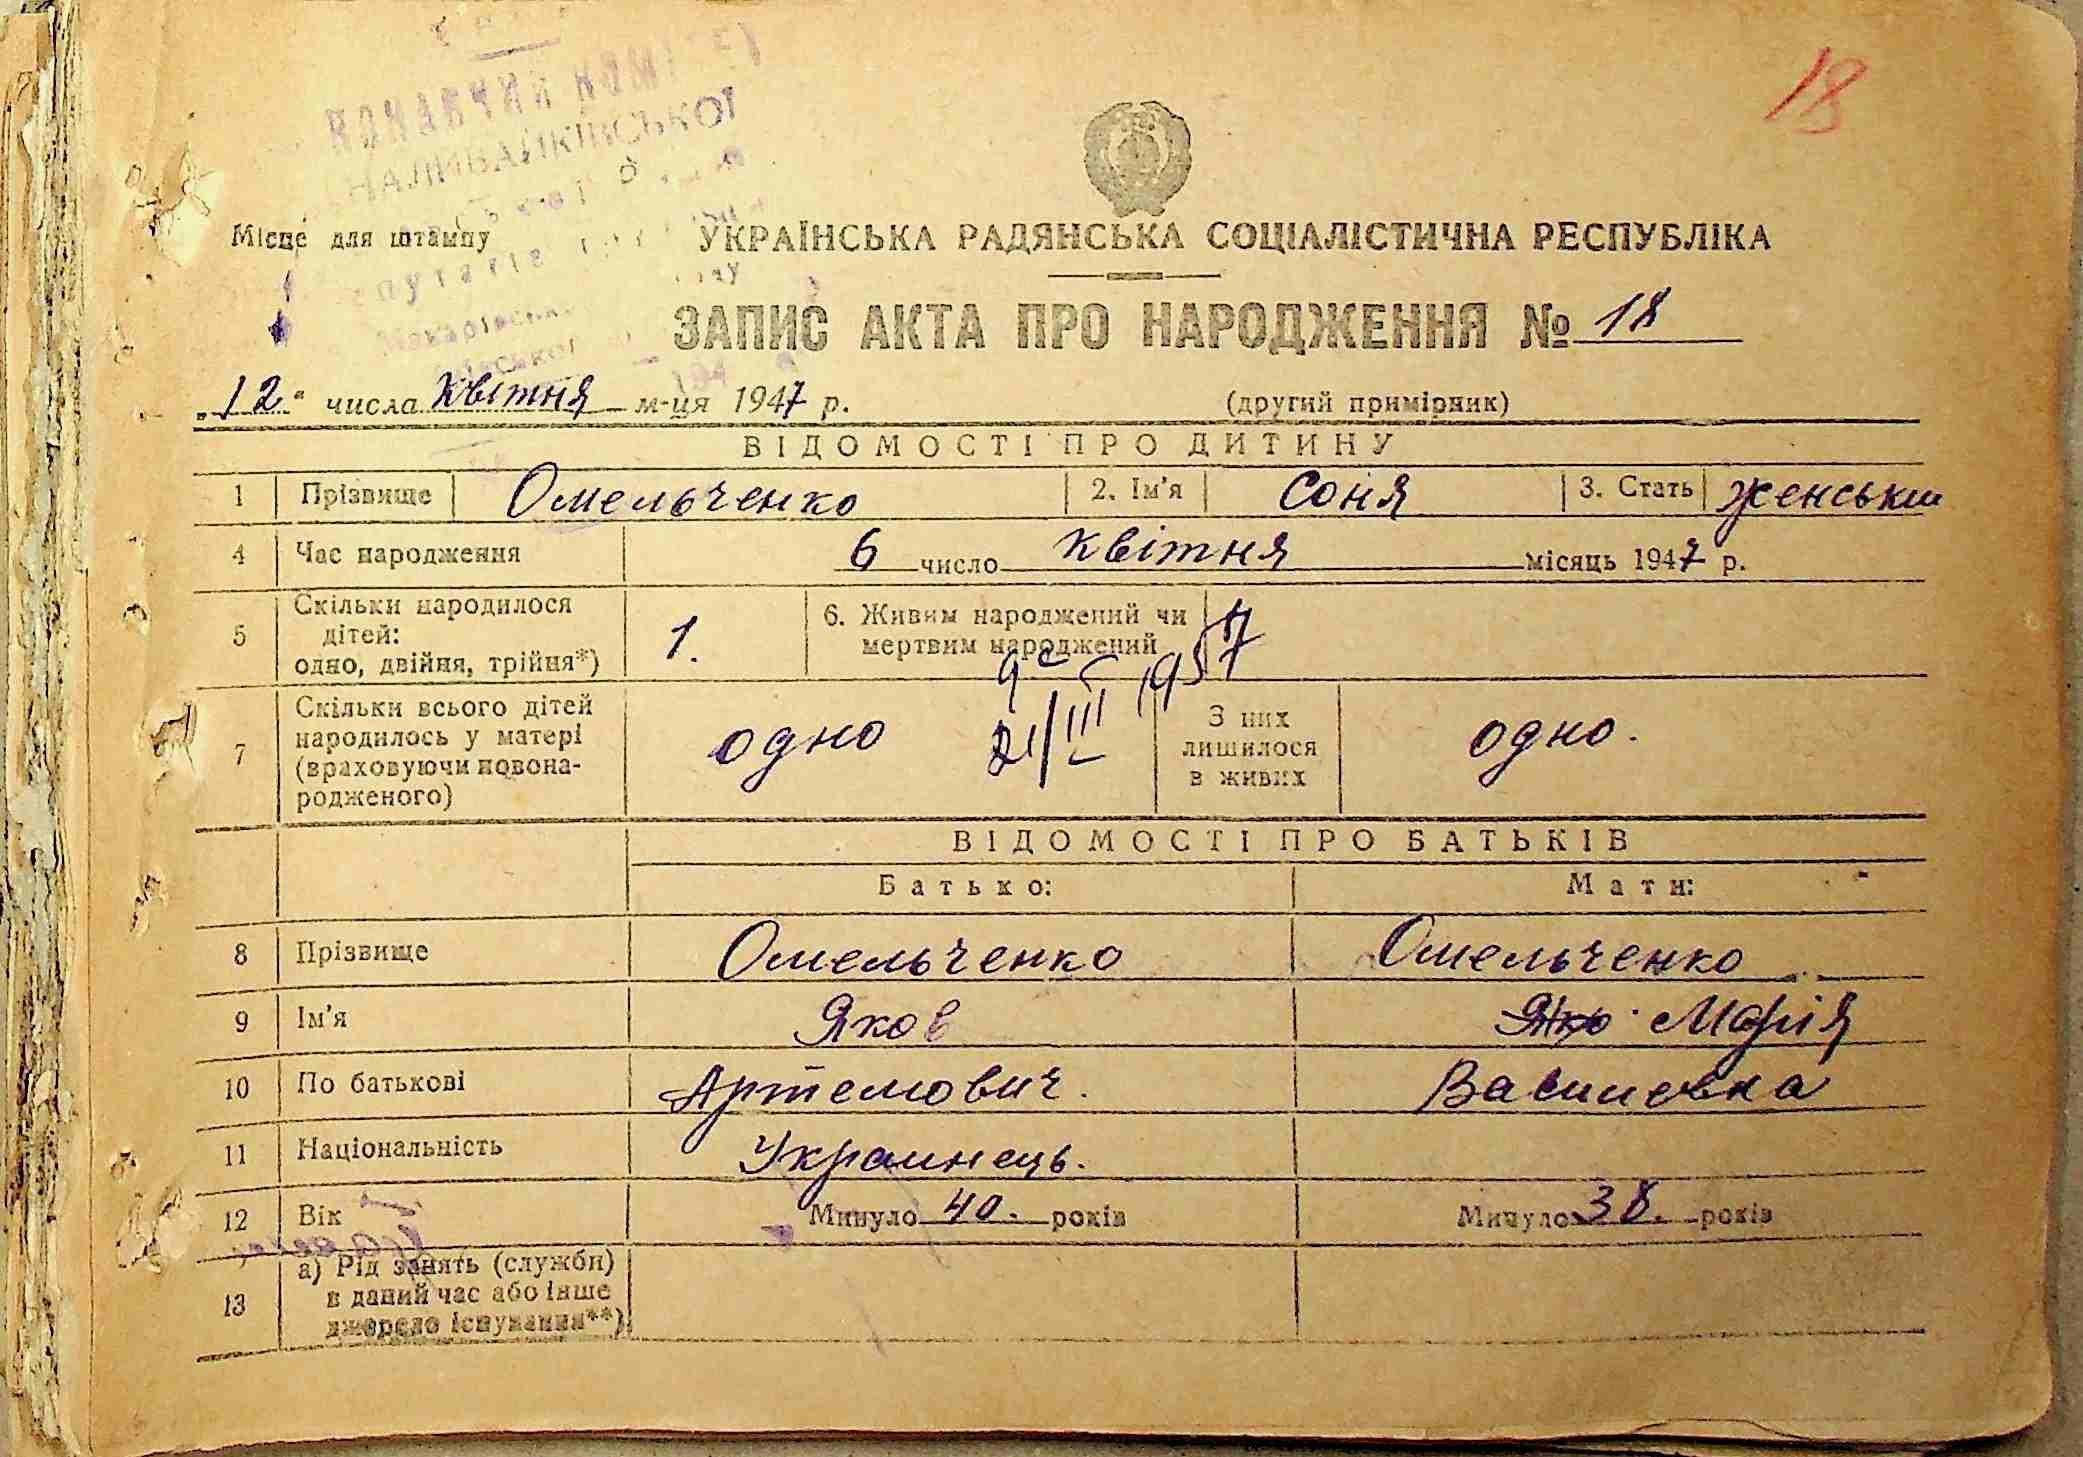 18
НАЛИВАЙКІВСЬКОЇ
Місце для штампу
УКРАЇНСЬКА РАДЯНСЬКА СОЦІАЛІСТИЧНА РЕСПУБЛІКА
ЗАПИС АКТА ПРО НАРОДЖЕННЯ № 18
„12“ числа квітня м-ця 1947 р. (другий примірник)
ВІДОМОСТІ ПРО ДИТИНУ
1 Прізвище Омельченко 2. Ім'я Соня 3. Стать женський
4 Час народження 6 число квітня місяць 1947 р.
5 Скільки народилося дітей: одно, двійня, трійня*) 1. 6. Живим народжений чи мертвим народжений
1957
21/III
7 Скільки всього дітей народилось у матері (враховуючи новонародженого) одно З них лишилося в живих одно.
ВІДОМОСТІ ПРО БАТЬКІВ
Батько: Мати:
8 Прізвище Омельченко Омельченко
9 Ім'я Яков Марія
10 По батькові Артемович. Василевна
11 Національність Украинець.
12 Вік Минуло 40. років Минуло 38. років
13 а) Рід занять (служби) в даний час або інше джерело існування**)